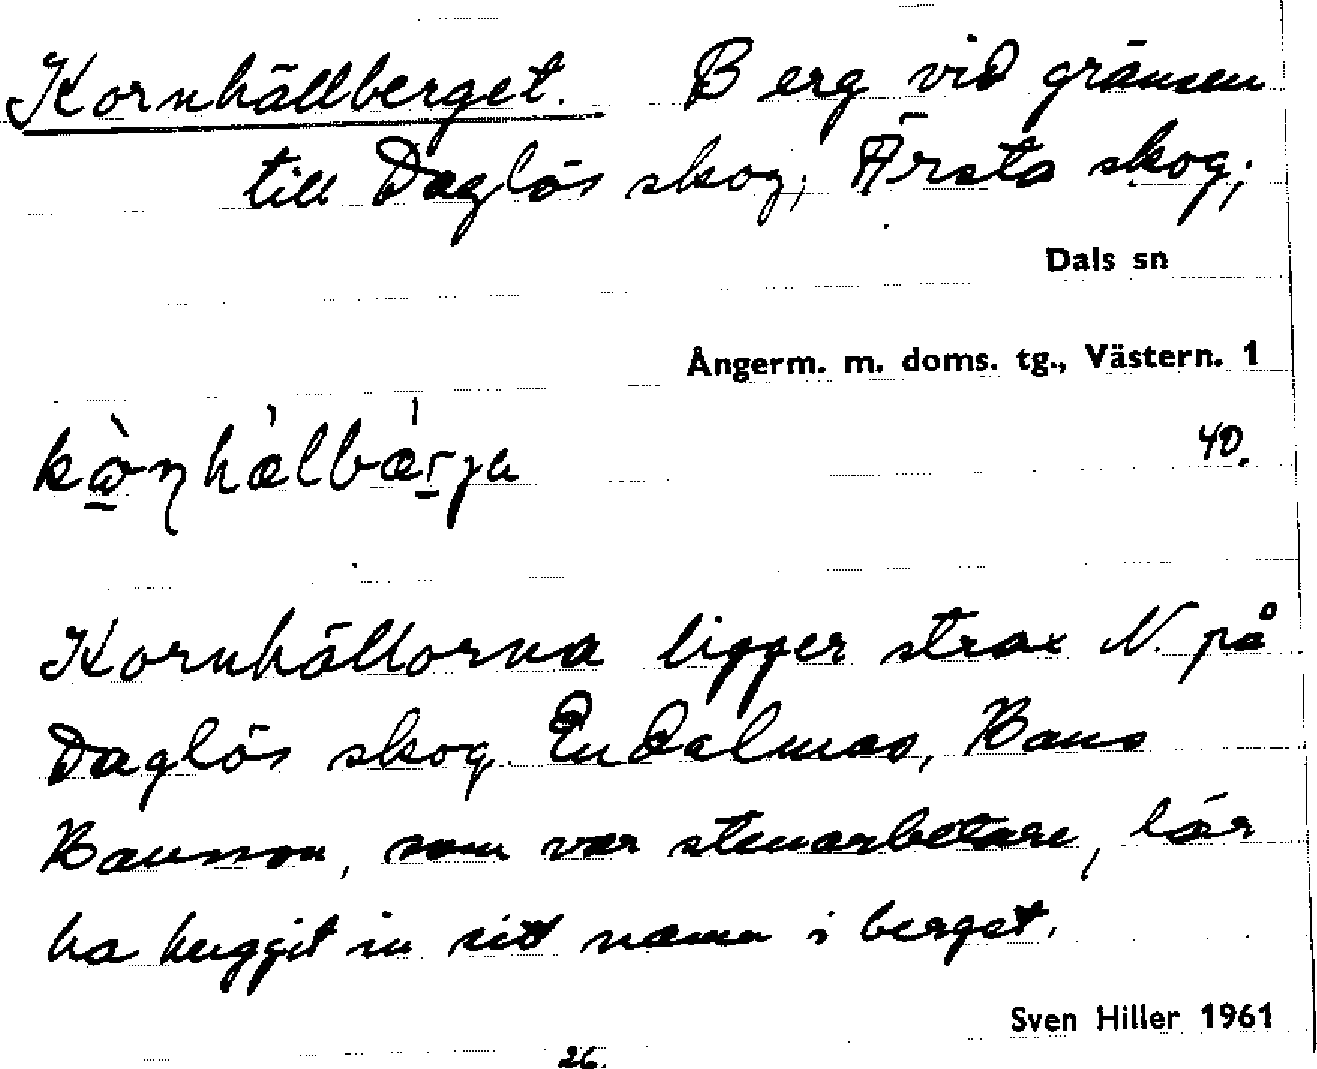 Kornhällberget. Berg vid gränsen
till Daglös skog; Ärsta skog;
Dals sn
Ångerm. m. doms. tg., Västern. 1
40.
Kornhällorna ligger strax N. på
Daglös skog. En dalmas, Bans
Bansson, som var stenarbetare, lär
ha huggit in sitt namn i berget.
Sven Hiller 1961
26.